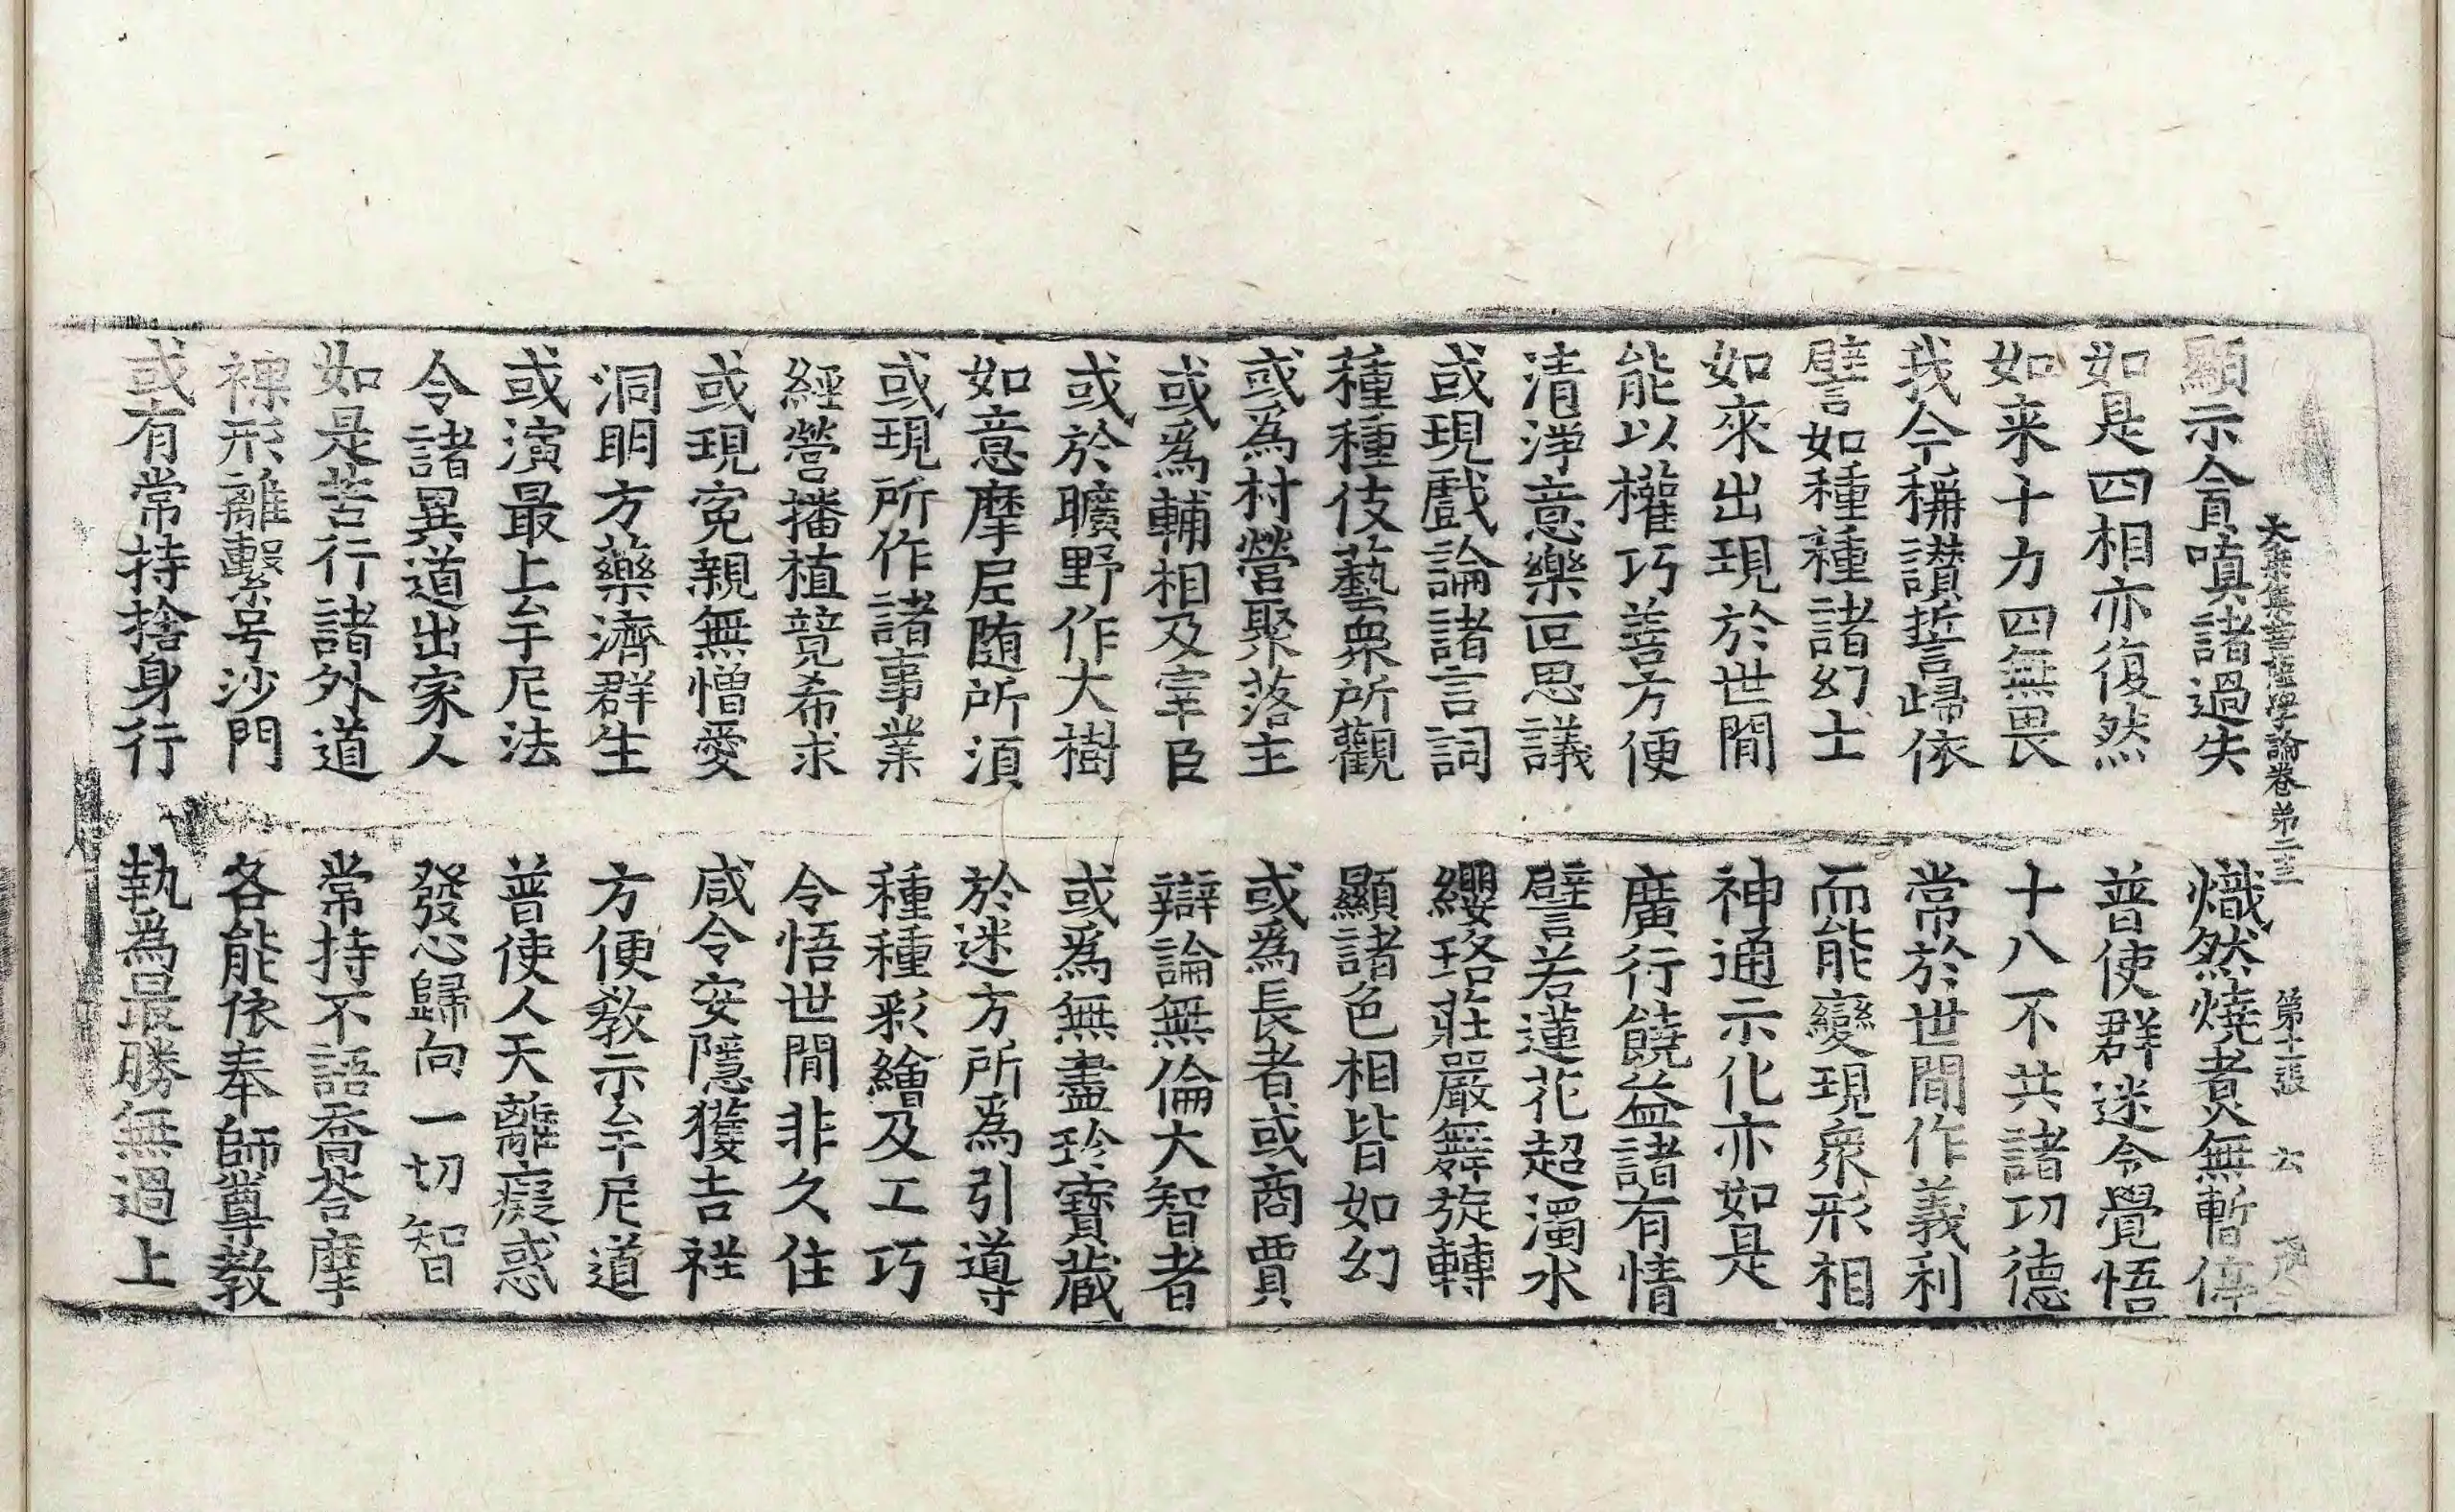 大乘集菩薩學論卷第二三　第十一張　公
顯示貪嗔諸過失　熾然燒煑無暫停
如是四相亦復然　普使群迷令覺悟
如来十力四無畏　十八不共諸功德
我今稱讃誓歸依　常於世間作義利
譬如種種諸幻士　而能變現衆形相
如來出現於世閒　神通示化亦如是
能以權巧善方便　廣行饒益諸有情
清淨意樂叵思議　譬若蓮花超濁水
或現戲論諸言詞　纓珞莊嚴舞旋轉
種種伎藝衆所觀　顯諸色相皆如幻
或爲村營聚落主　或爲長者或商賈
或爲輔相及宰臣　辯論無倫大智者
或於曠野作大樹　或爲無盡珍寶藏
如意摩尼随所須　於迷方所爲引導
或現所作諸事業　種種彩繪及工巧
經營播植競希求　令悟世閒非久住
或現寃親無憎愛　咸令安隱獲吉祥
洞明方藥濟群生　方便教示牟尼道
或演最上牟尼法　普使人天離癡惑
令諸異道出家人　發心歸向一切智
如是苦行諸外道　常持不語喬荅摩
裸形離繫号沙門　各能依奉師尊教
或有常持捨身行　執爲最勝無過上